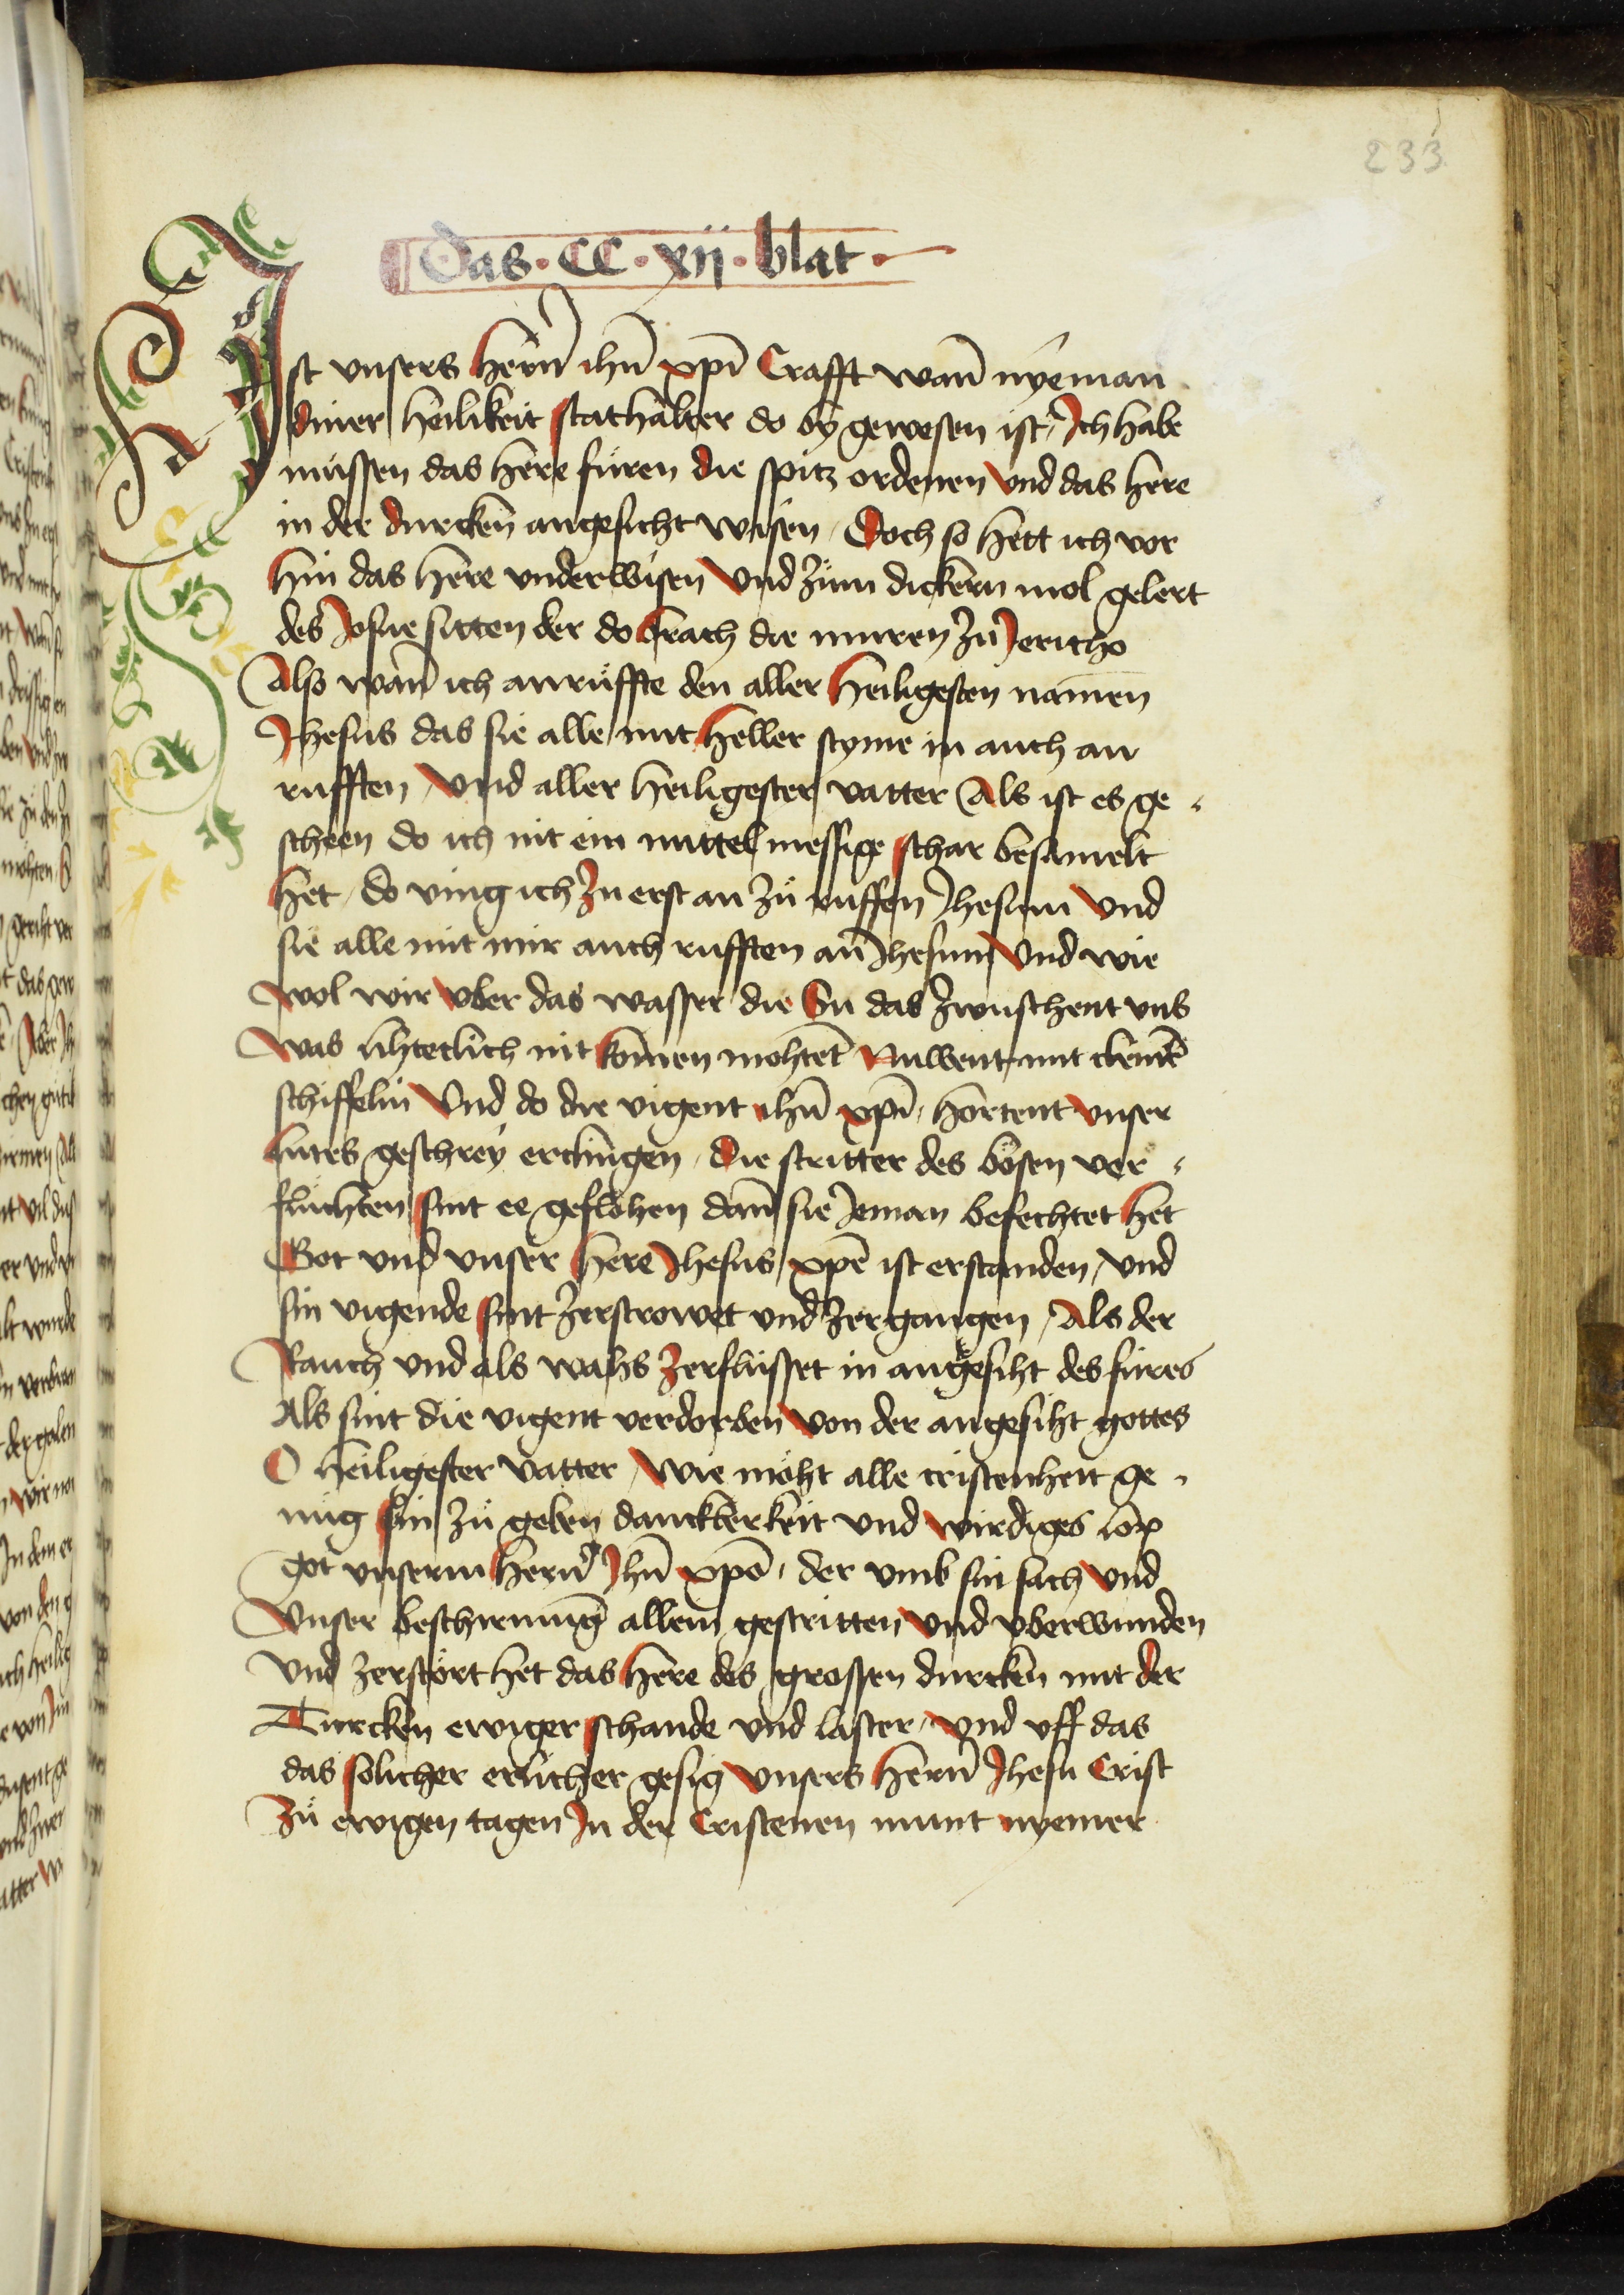 233
Das · CC · xij · blat ·
Ist vnsers herñ ihũ xp̃i Crafft wañ nyeman
diner heilikeit stathalter do by gewesen ist / Ich habe
müssen das here füren die spitz ordenen vnd das here
in der durcken angesicht wisen / Doch so hett ich vor
hin das here vnderwisen vnd zům dickern mol gelert
des Josue sitten der do brach die muren zů Jericho
Also wañ ich anrüffte den aller heiligesten namen
Jhesus das sie alle mit heller styme in auch an
rufften / vnd aller heiligester vatter Als ist es ge
scheen do ich nit ein mittelmessige schar besamelt
het / do ving ich zu erst an zů ruffen Jhesum vnd
sie alle mit mir auch rufften an Jhesum vnd wie
wol wir vber das wasser die Su das zwuschent vns
was lihteclich nit komen mohtet Nuwent mit cleinē
schiffelin vnd do die vigent ihũ xp̃i / hortent vnser
lutes geschrey erclingen / die stritter des bösen ver
fluhten sint ee geflohen dañ sie Jeman befechtet het
Got vnd vnser here Jhesus xp̃c ist erstanden / vnd
sin vigende sint zerstrowet vnd zergangen / Als der
Rauch vnd als wahs zerflüsset in angesiht des füres
Als sint die vigent verdorben von der angesiht gottes
O heiligester vatter / wie möht alle cristenheit ge
nüg sin zů geben danckberkeit vnd wirdiges lop
got vnserm herñ Jhũ xp̃o / der vmb sin sach vnd
vnser beschirmũg allein gestritten vnd vberwunden
vnd zerstört het das here des grossen durcken mit der
Turcken ewiger schande vnd laster / vnd vff das
das solicher erlicher gesig vnsers herñ Jhesu Crist
Zů ewigen tagen In der Cristenen munt nyemer